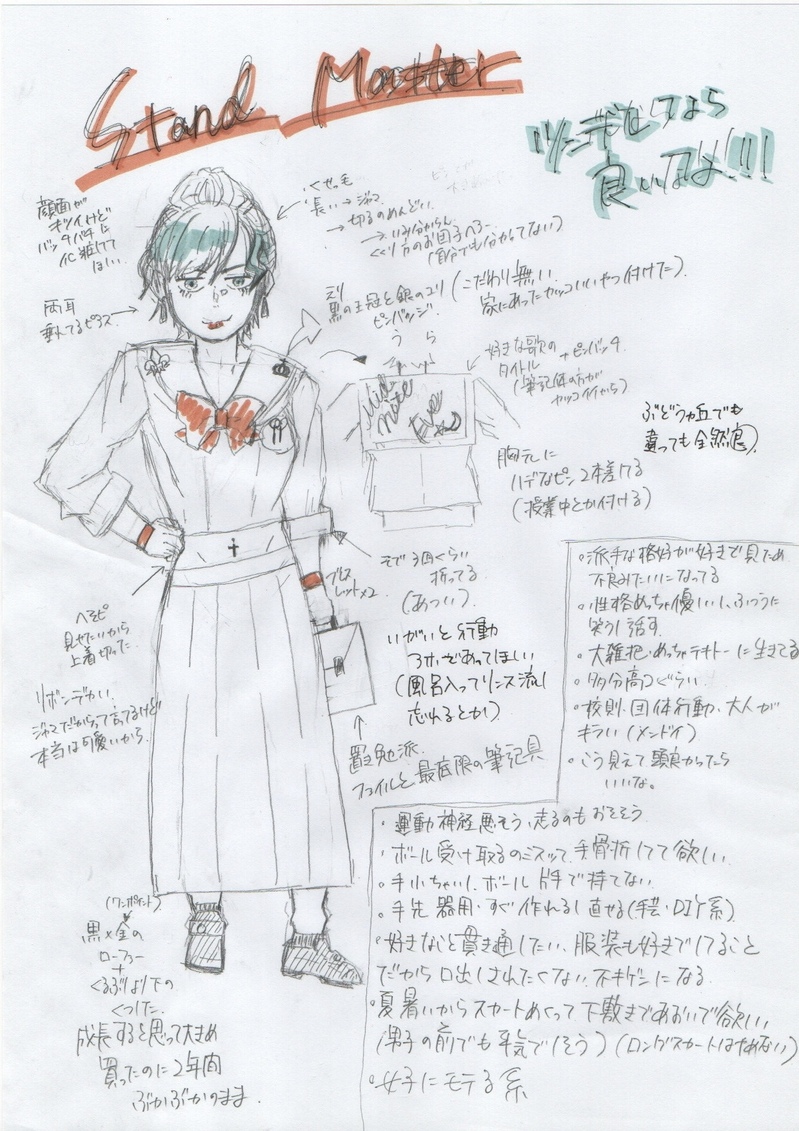 Stand Master
ツンデレなら
良いなよ!!!
顔面が
キツイけど
バッチバチに
化粧けてて
ほしい
両耳
垂れてるピアス
くせっ毛
長い→ジャマ
→切るのめんどい
→いみ分からん
くくり方のお団子ヘアー
(自分でも分かってない)
えり
黒の王冠と銀のユリ
ピンバッジ
(こだわり無い.
家にあったカッコいいやつ付けた)
うら
Mid
Note
Eve
好きな歌の
タイトル
+ピンバッチ
(筆記体の方が
カッコイイから)
胸ポケに
ハデなピン2本差してる
(授業中とか付ける)
ぶどうヶ丘でも
違っても全然良
そで3回くらい
折ってる
(あつい)
ブレス
レット×2
へそピ
見せたいから
上着切った
リボンデカい.
ジャマだからって言ってるけど
本当は可愛いから.
いがいと行動
(風呂入ってリンス流し
忘れるとか)
置き勉派.
ファイルと最底限の筆記具
・派手な格好が好きで見ため
不良みたいになってる
・性格めっちゃ優しいし、ふつうに
笑うし話す.
・大雑把.めっちゃテキトーに生きてる
・多分高2ぐらい.
・校則・団体行動・大人が
キライ(メンドイ)
・こう見えて頭良かったら
いいな。
・運動神経悪そう、走るのもおそそう
・ボール受け取るのミスッて、手骨折してて欲しい
・手小ちゃいし、ボール片手で持てない
・手先器用・すぐ作れるし直せる(手芸・DIY系)
・好きなこと貫き通したい、服装も好きでしてること
だから口出しされたくない.不キゲンになる.
・夏暑いからスカートめくって下敷きであおいで欲しい
(男子の前でも平気でしそう)(ロングスカートはやめない)
・女子にモテる系
(ワンポイント)
黒×金の
ローファー
+
くるぶしより下の
くつした.
成長すると思って大きめ
買ったのに2年間
ぶかぶかのまま.